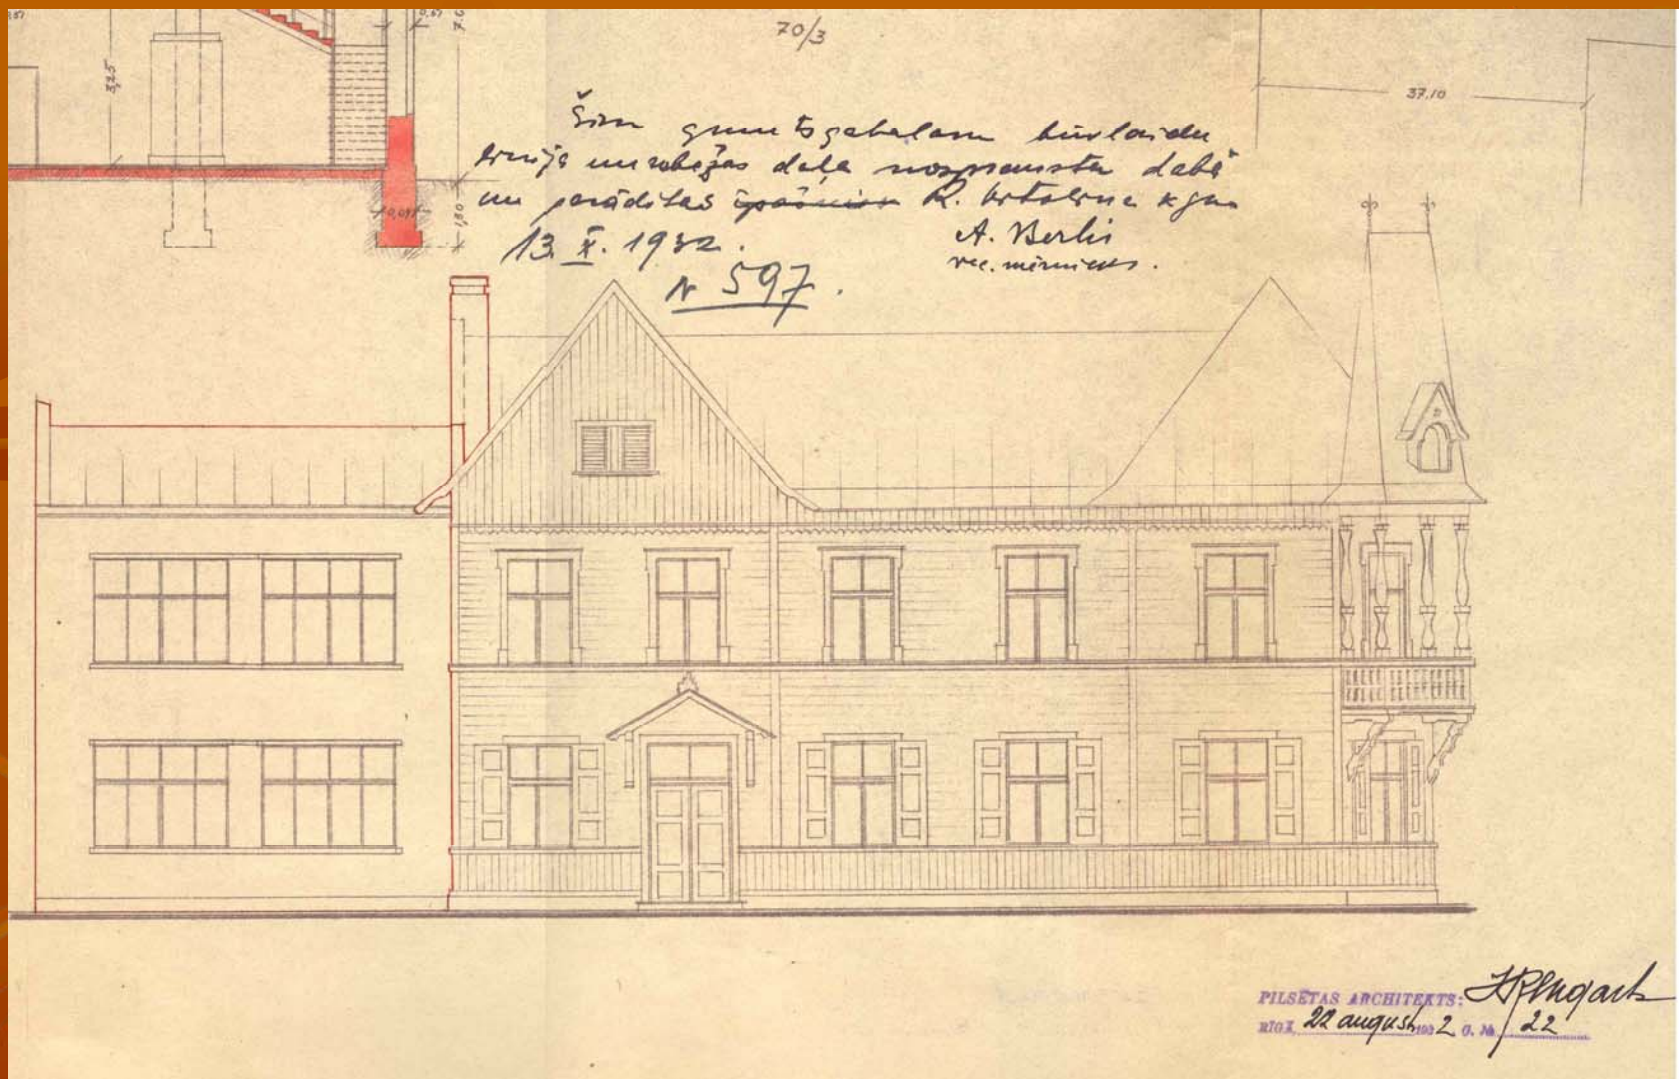 70/3
7.0
3,25
37.10
Šim gruntsgabalam būvlaides
līnija un robežas daļa nosprausta dabā
un parādītas īpašniek R. k-gam
0,60
1,80
13. X. 1932.
A. Berlis
vec. mērnieks.
N 597.
PILSĒTAS ARCHITEKTS:
RĪGĀ, 22 august 1932 G. № 22